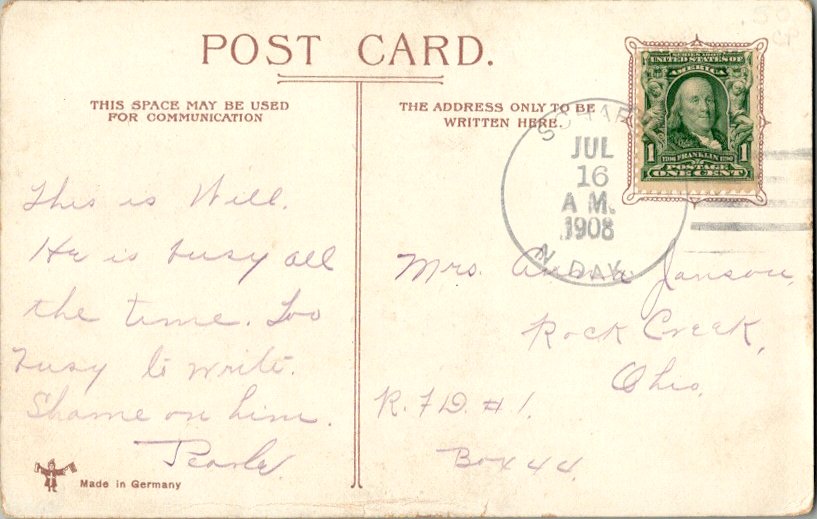 POST CARD.
THIS SPACE MAY BE USED
FOR COMMUNICATION
THE ADDRESS ONLY TO BE
WRITTEN HERE.
SERIES 1902
UNITED STATES OF
AMERICA
1 1706 FRANKLIN 1790 1
POSTAGE
ONE CENT
JUL
16
A M.
1908
N. DAK.
This is Will.
He is busy all
the time. Too
busy to write.
Shame on him.
Mrs. Anna Janson,
Rock Creek,
Ohio.
R. F D. # 1.
Box 44.
Made in Germany